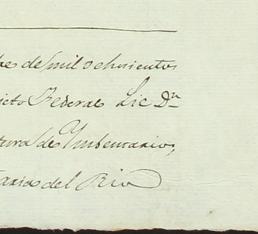 bre de mil ochocientos
ricto Federal Lic Dn
tura de Ynbentarios,
del Rio